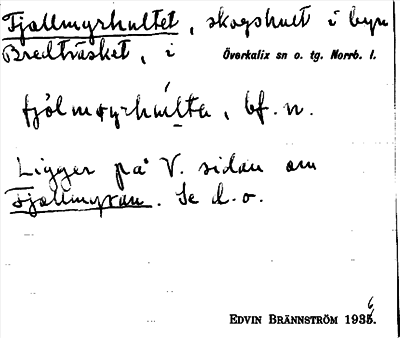 Fjällmyrhultet, skogshult i byn
Bredträsket, i Överkalix sn o. tg. Norrb. l.
fjólmyrhúlta, bf. n.
Ligger på V. sidan om
Fjällmyran. Se d. o.
EDVIN BRÄNNSTRÖM 1936.